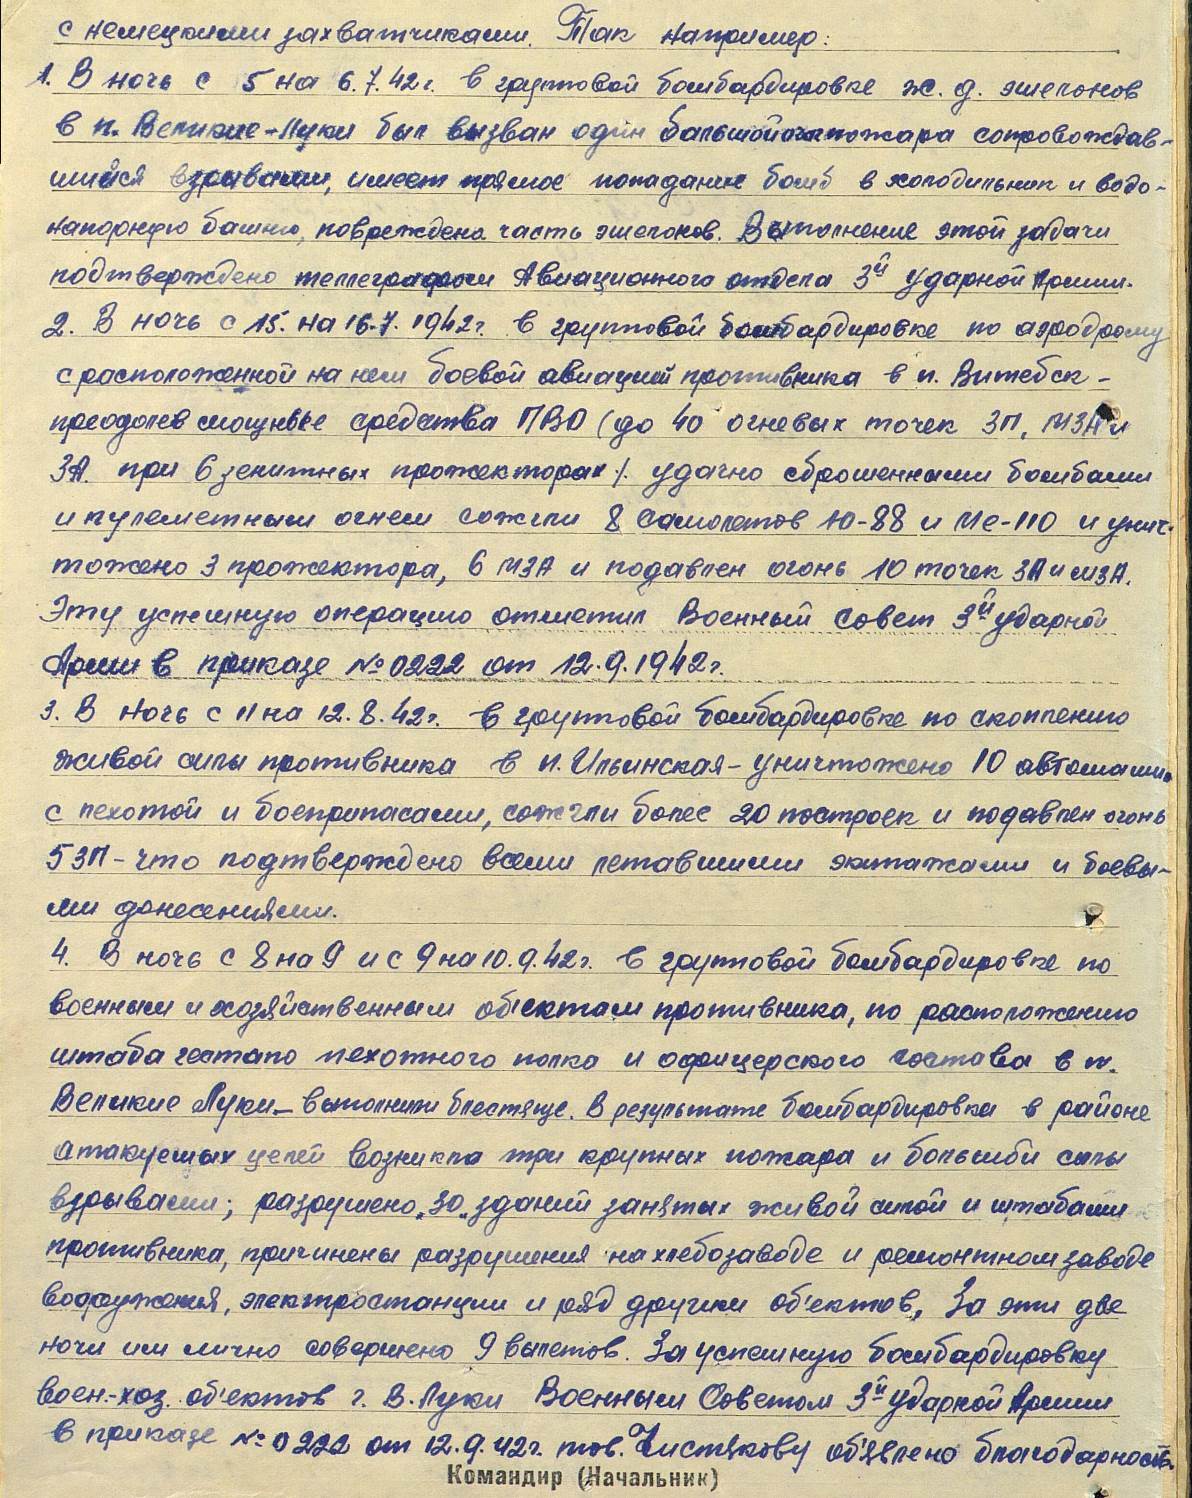 с немецкими захватчиками. Так например:
1. В ночь с 5 на 6.7.42г. в групповой бомбардировке ж. д. эшелонов
в п. Великие-Луки был вызван один большой пожара сопровождав-
шийся взрывами, имеет прямое попадание бомб в холодильник и водо-
напорную башню, повреждена часть эшелонов. Выполнение этой задачи
подтверждено телеграфом Авиационного отдела 3й ударной Армии.
2. В ночь с 15. на 16.7.1942г. в групповой бомбардировке по аэродрому
с расположенной на нем боевой авиацией противника в п. Витебск -
преодолев мощные средства ПВО (до 40 огневых точек ЗП, МЗА и
ЗА. при 6 зенитных прожекторах). удачно сброшенными бомбами
и пулеметным огнем сожгли 8 самолетов Ю-88 и Ме-110 и унич-
тожено 3 прожектора, 6 МЗА и подавлен огонь 10 точек ЗА и МЗА.
Эту успешную операцию отметил Военный Совет 3й ударной
Армии в приказе № 0222 от 12.9.1942г.
3. В ночь с 11 на 12.8.42г. в групповой бомбардировке по скоплению
живой силы противника в п. Ильинская - уничтожено 10 автомашин
с пехотой и боеприпасами, сожгли более 20 построек и подавлен огонь
5 ЗП - что подтверждено всеми летавшими экипажами и боевы-
ми донесениями.
4. В ночь с 8 на 9 и с 9 на 10.9.42г. в групповой бомбардировке по
военным и хозяйственным об'ектам противника, по расположению
штаба гестапо пехотного полка и офицерского состава в п.
Великие Луки - выполнили блестяще. В результате бомбардировки в районе
атакуемых целей возникло три крупных пожара и большой силы
взрывами; разрушено "30" зданий занятых живой силой и штабами
противника, причинены разрушения на хлебозаводе и ремонтном заводе
вооружения, электростанции и ряд других об'ектов, За эти две
ночи им лично совершено 9 вылетов. За успешную бомбардировку
воен.-хоз. об'ектов г. В. Луки Военным Советом 3й ударной Армии
в приказе № 0222 от 12.9.42г. тов. Чистякову об'явлено благодарность.
Командир (Начальник)